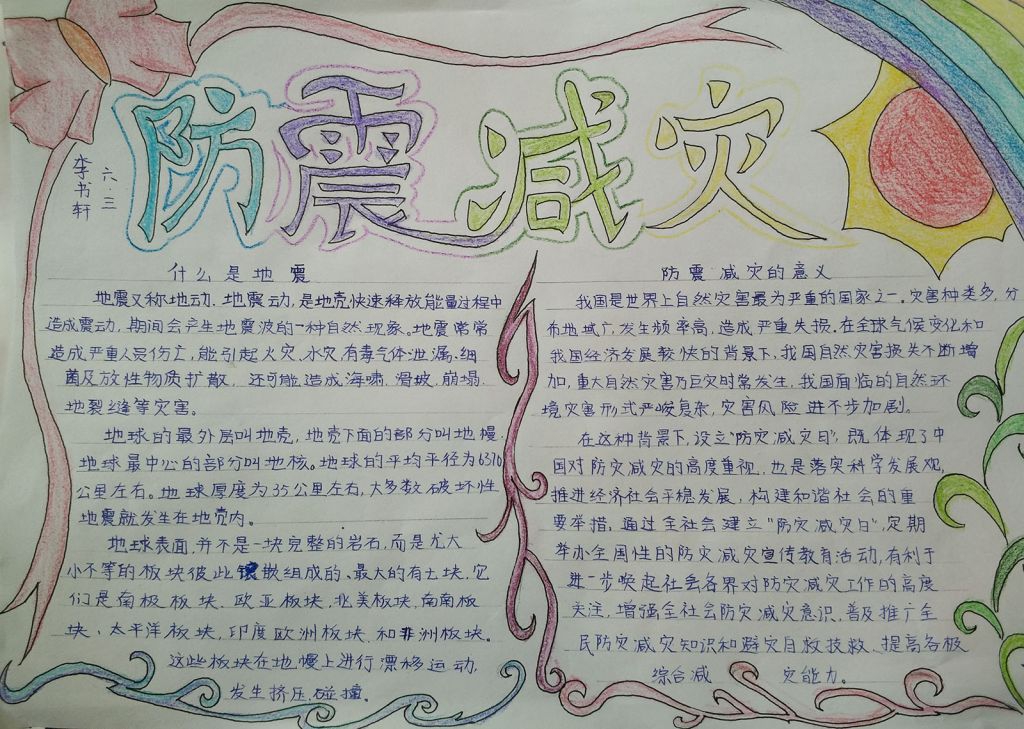 防震减灾
李书轩
六.三
什么是地震
地震又称地动、地震动,是地壳快速释放能量过程中
造成震动,期间会产生地震波的一种自然现象。地震常常
造成严重人员伤亡,能引起火灾、水灾、有毒气体泄漏、细
菌及放性物质扩散,还可能造成海啸、滑坡、崩塌、
地裂缝等灾害。
地球的最外层叫地壳,地壳下面的部分叫地幔,
地球最中心的部分叫地核。地球的平均半径为6370
公里左右。地球厚度为35公里左右,大多数破坏性
地震就发生在地壳内。
地球表面,并不是一块完整的岩石,而是尤大
小不等的板块彼此镶嵌组成的、最大的有七块,它
们是南极板块、欧亚板块、北美板块、南南板
块、太平洋板块,印度欧洲板块、和非洲板块。
这些板块在地幔上进行漂移运动,
发生挤压、碰撞。
防震减灾的意义
我国是世界上自然灾害最为严重的国家之一。灾害种类多,分
布地域广、发生频率高,造成严重失损。在全球气候变化和
我国经济发展较快的背景下,我国自然灾害损失不断增
加,重大自然灾害乃巨灾时常发生,我国面临的自然环
境灾害形式严峻复杂,灾害风险进不步加剧。
在这种背景下,设立"防灾减灾日",既体现了中
国对防灾减灾的高度重视,也是落实科学发展观,
推进经济社会平稳发展,构建和谐社会的重
要举措,通过全社会建立"防灾减灾日",定期
举办全国性的防灾减灾宣传教育活动,有利于
进一步唤起社会各界对防灾减灾工作的高度
关注,增强全社会防灾减灾意识,普及推广全
民防灾减灾知识和避灾自救技救、提高各极
综合减灾能力。